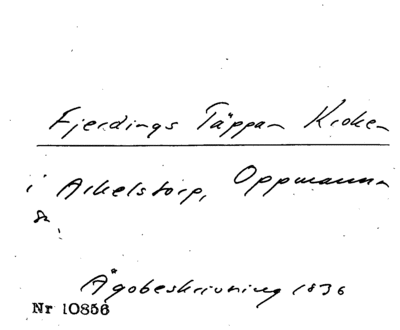 Fjerdings Täppan Kroken
i Arkelstorp, Oppmanna
sn.
Ägobeskrivning 1836
Nr 10856